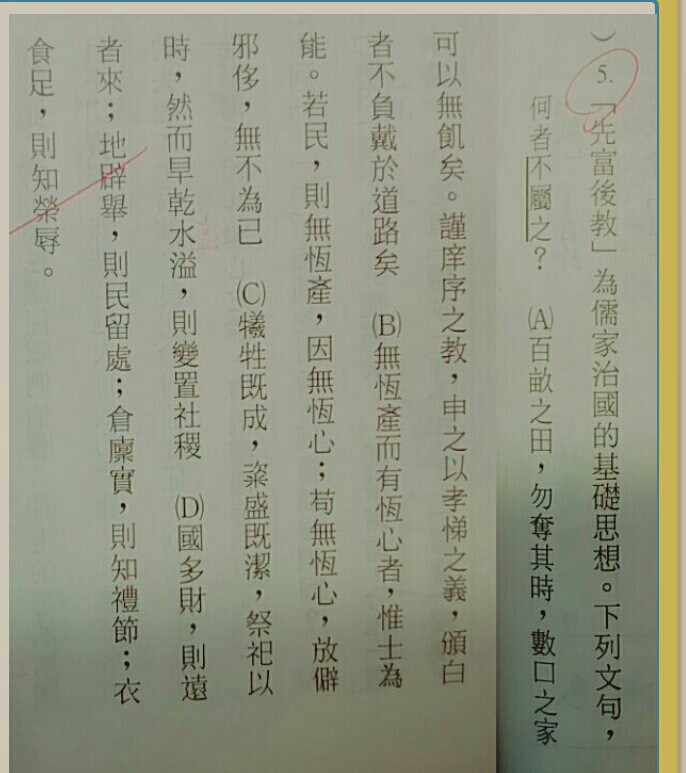 ）5.「先富後教」為儒家治國的基礎思想。下列文句，
何者不屬之？　(A)百畝之田，勿奪其時，數口之家
可以無飢矣。謹庠序之教，申之以孝悌之義，頒白
者不負戴於道路矣　(B)無恆產而有恆心者，惟士為
能。若民，則無恆產，因無恆心；苟無恆心，放僻
邪侈，無不為已　(C)犧牲既成，粢盛既潔，祭祀以
時，然而旱乾水溢，則變置社稷　(D)國多財，則遠
者來；地辟舉，則民留處；倉廩實，則知禮節；衣
食足，則知榮辱。